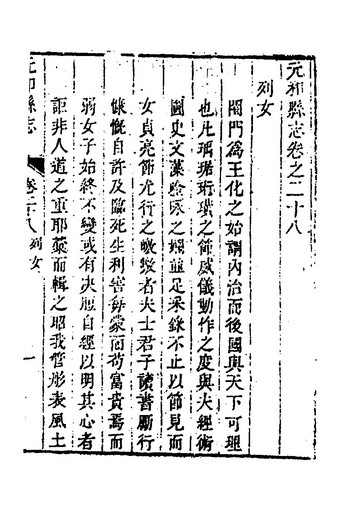 元和縣志卷之二十八
列女
閨門爲王化之始謂內治而後國與天下可理
也凡瑀珩璜之節威儀動作之度與夫經術
國史文藻之嫺並足采錄不止以節見而
女貞亮節尤行之皦皦者夫士君子讀書勵行
慷慨自許及臨死生利害餘蒙而苟富貴焉而
弱女子始終不變或有决脰自經以明其心者
詎非人道之重耶彙而輯之昭我管彤表風土
元和縣志
卷二十八 列女
一